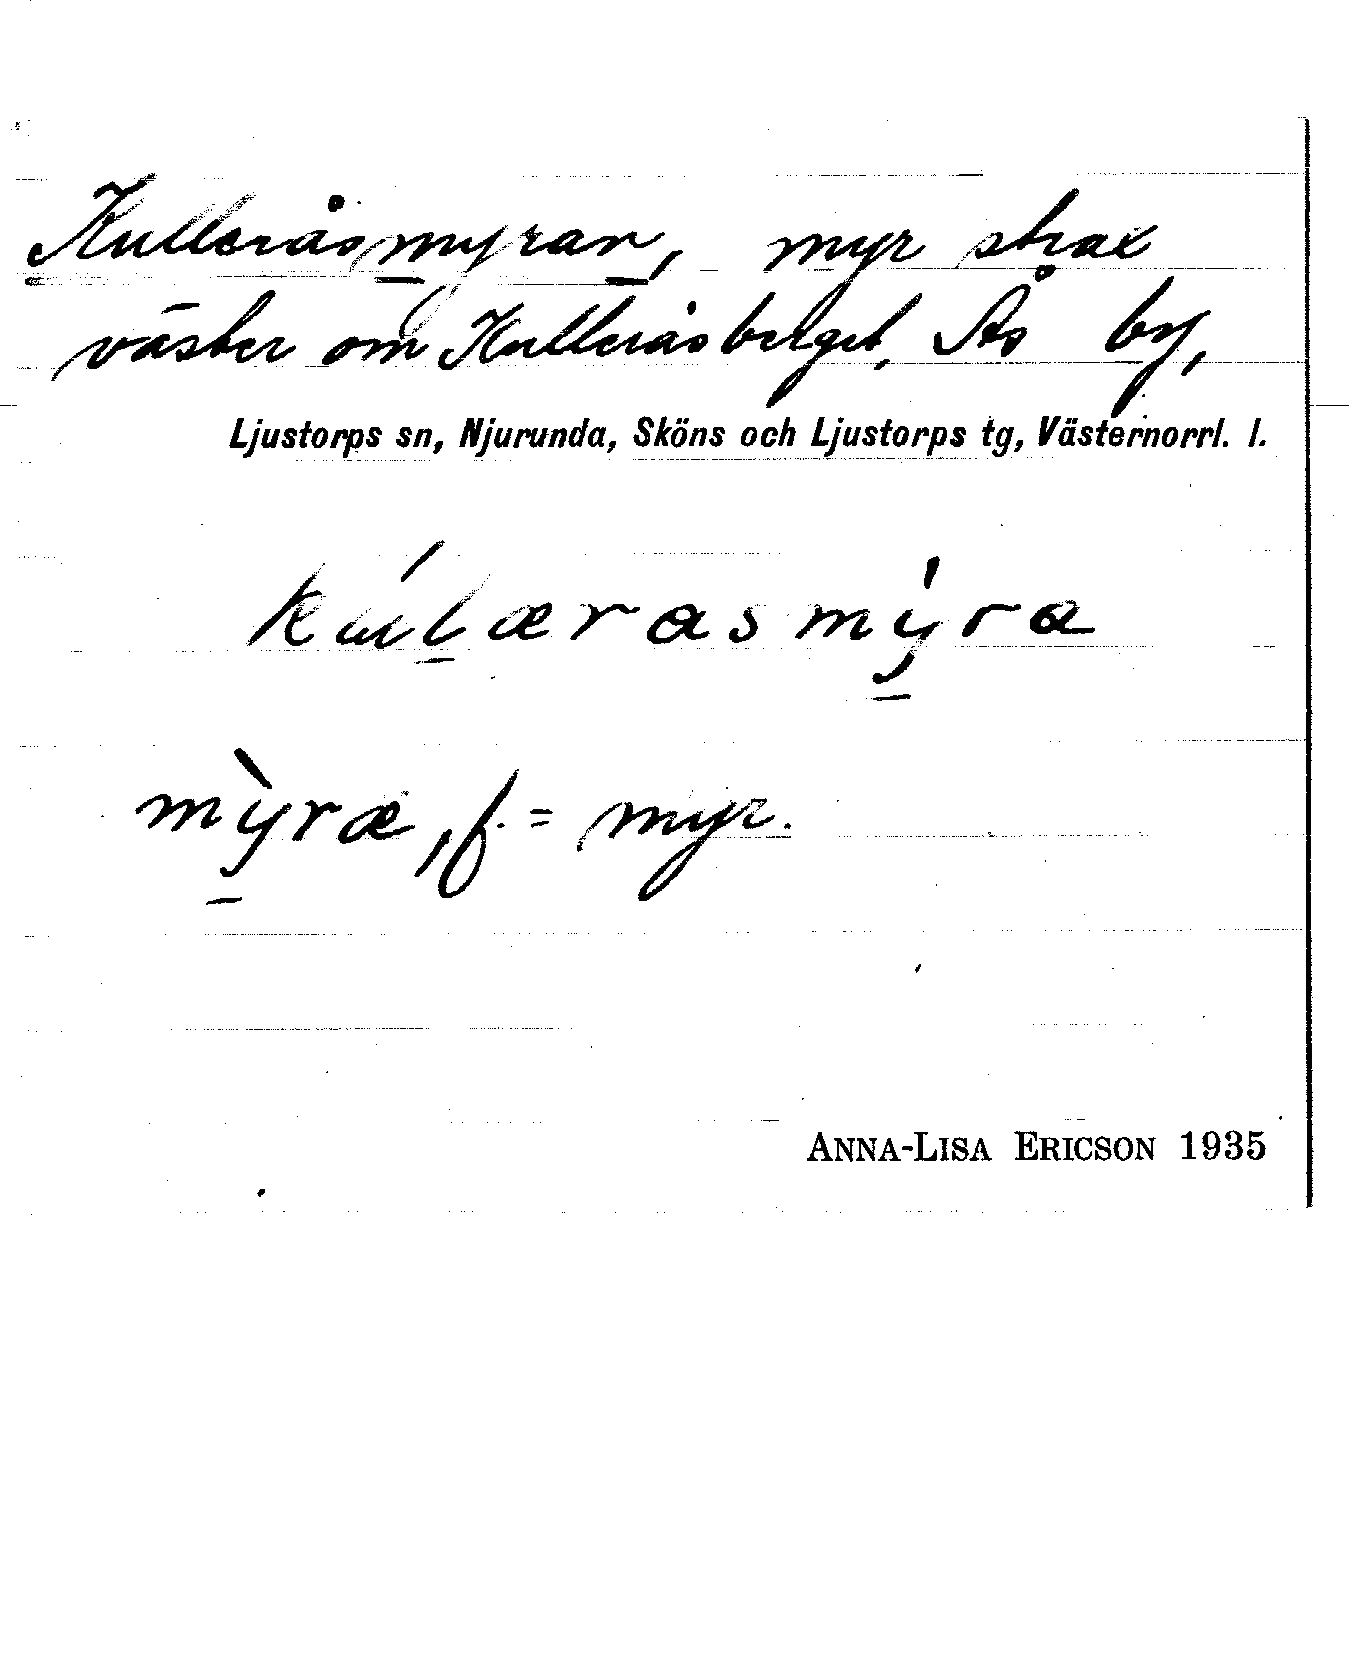 Kulleråsmyran, myr strax
väster om Kulleråsberget, Ås by,
Ljustorps sn, Njurunda, Sköns och Ljustorps tg, Västernorrl. l.
kúl̲ærasmý̲ra
mỳ̲ræ, f. = myr.
ANNA-LISA ERICSON 1935